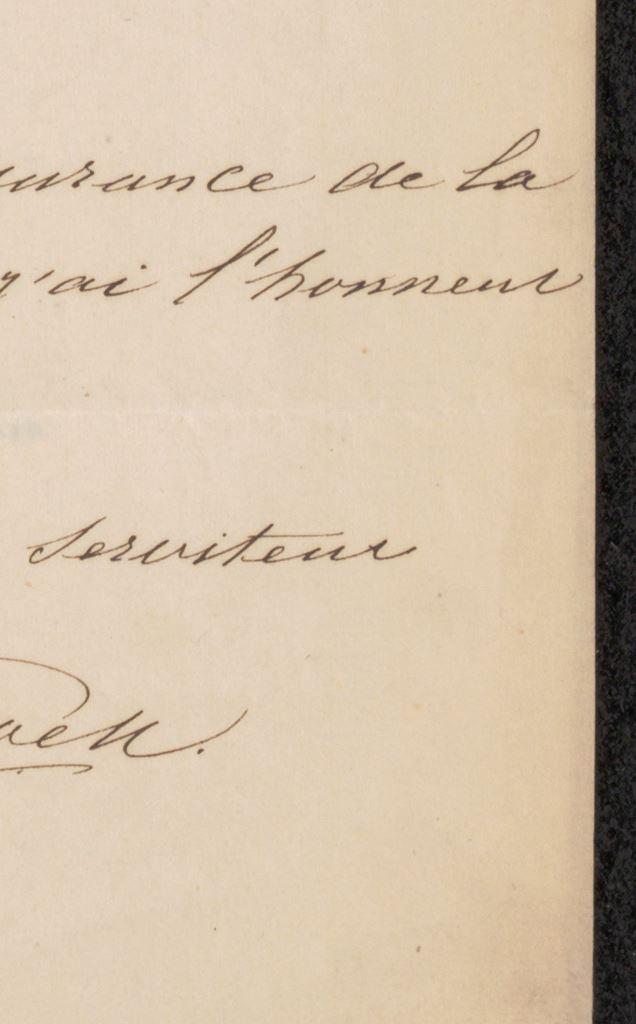 urance de la
j'ai l'honneur
serviteur